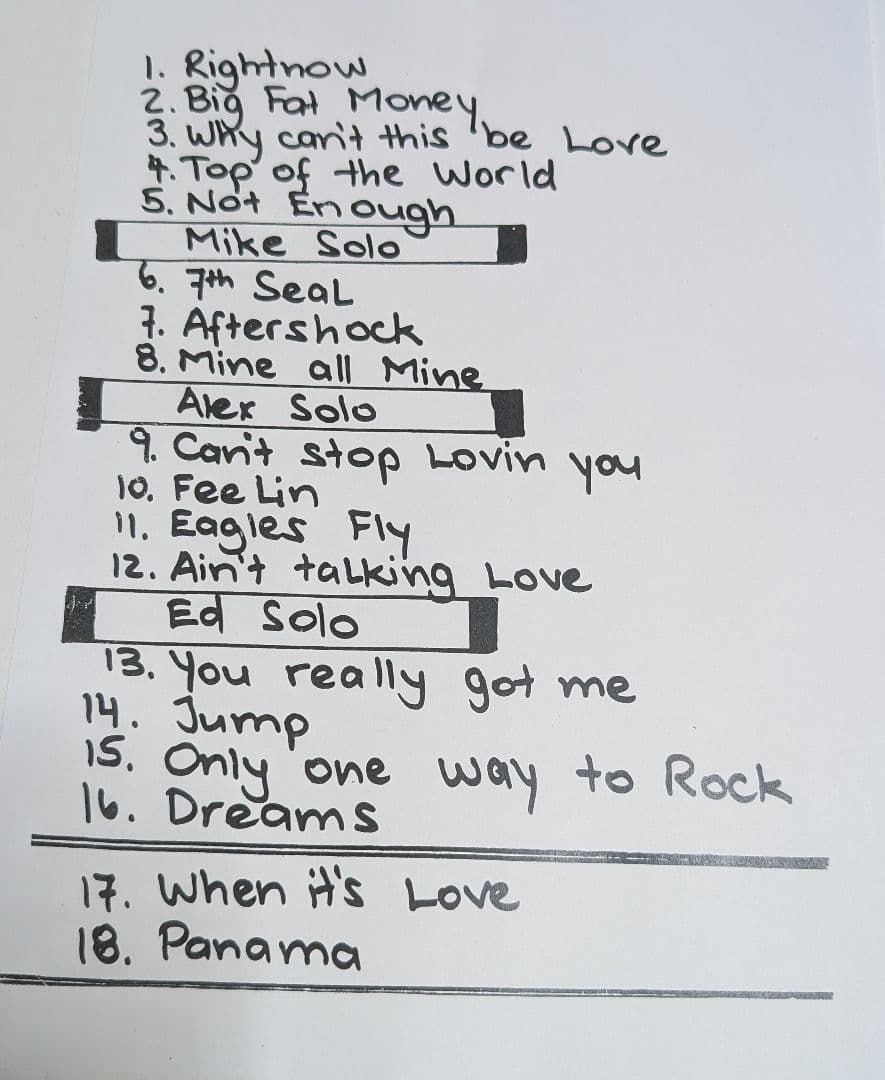 1. Rightnow
2. Big Fat Money
3. Why can't this be Love
4. Top of the World
5. Not Enough
Mike Solo
6. 7th Seal
7. Aftershock
8. Mine all Mine
Alex Solo
9. Can't stop Lovin you
10. Feelin
11. Eagles Fly
12. Ain't talking Love
Ed Solo
13. You really got me
14. Jump
15. Only one way to Rock
16. Dreams
17. When it's Love
18. Panama